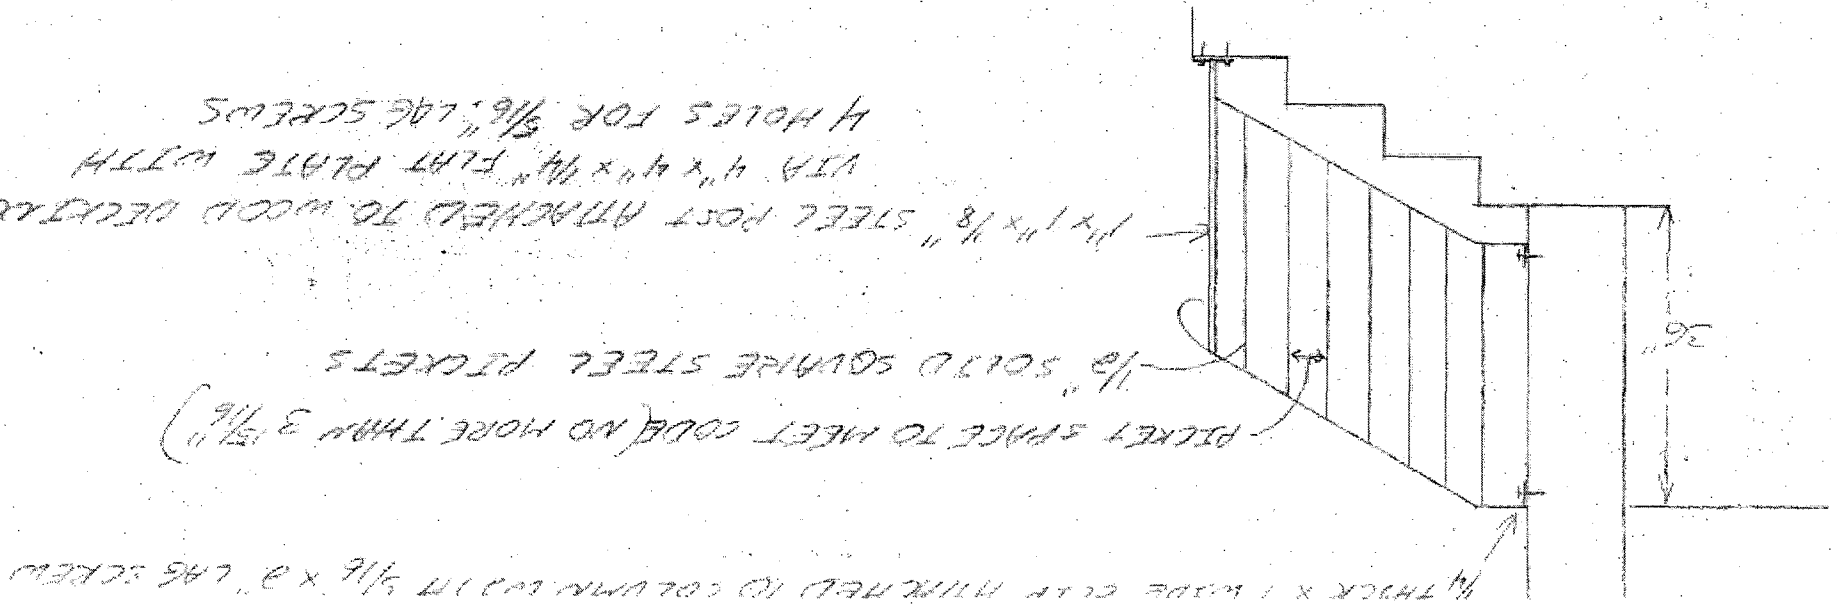 1/4" THICK x 1" WIDE CLIP ATTACHED TO COLUMN WITH 5/16 x 2" LAG SCREW
PICKET SPACE TO MEET CODE (NO MORE THAN 3 15/16")
1/2" SOLID SQUARE STEEL PICKETS
36"
1" x 1" x 1/8" STEEL POST ATTACHED TO WOOD DECKING
VIA 4" x 4" x 1/4" FLAT PLATE WITH
4 HOLES FOR 5/16" LAG SCREWS